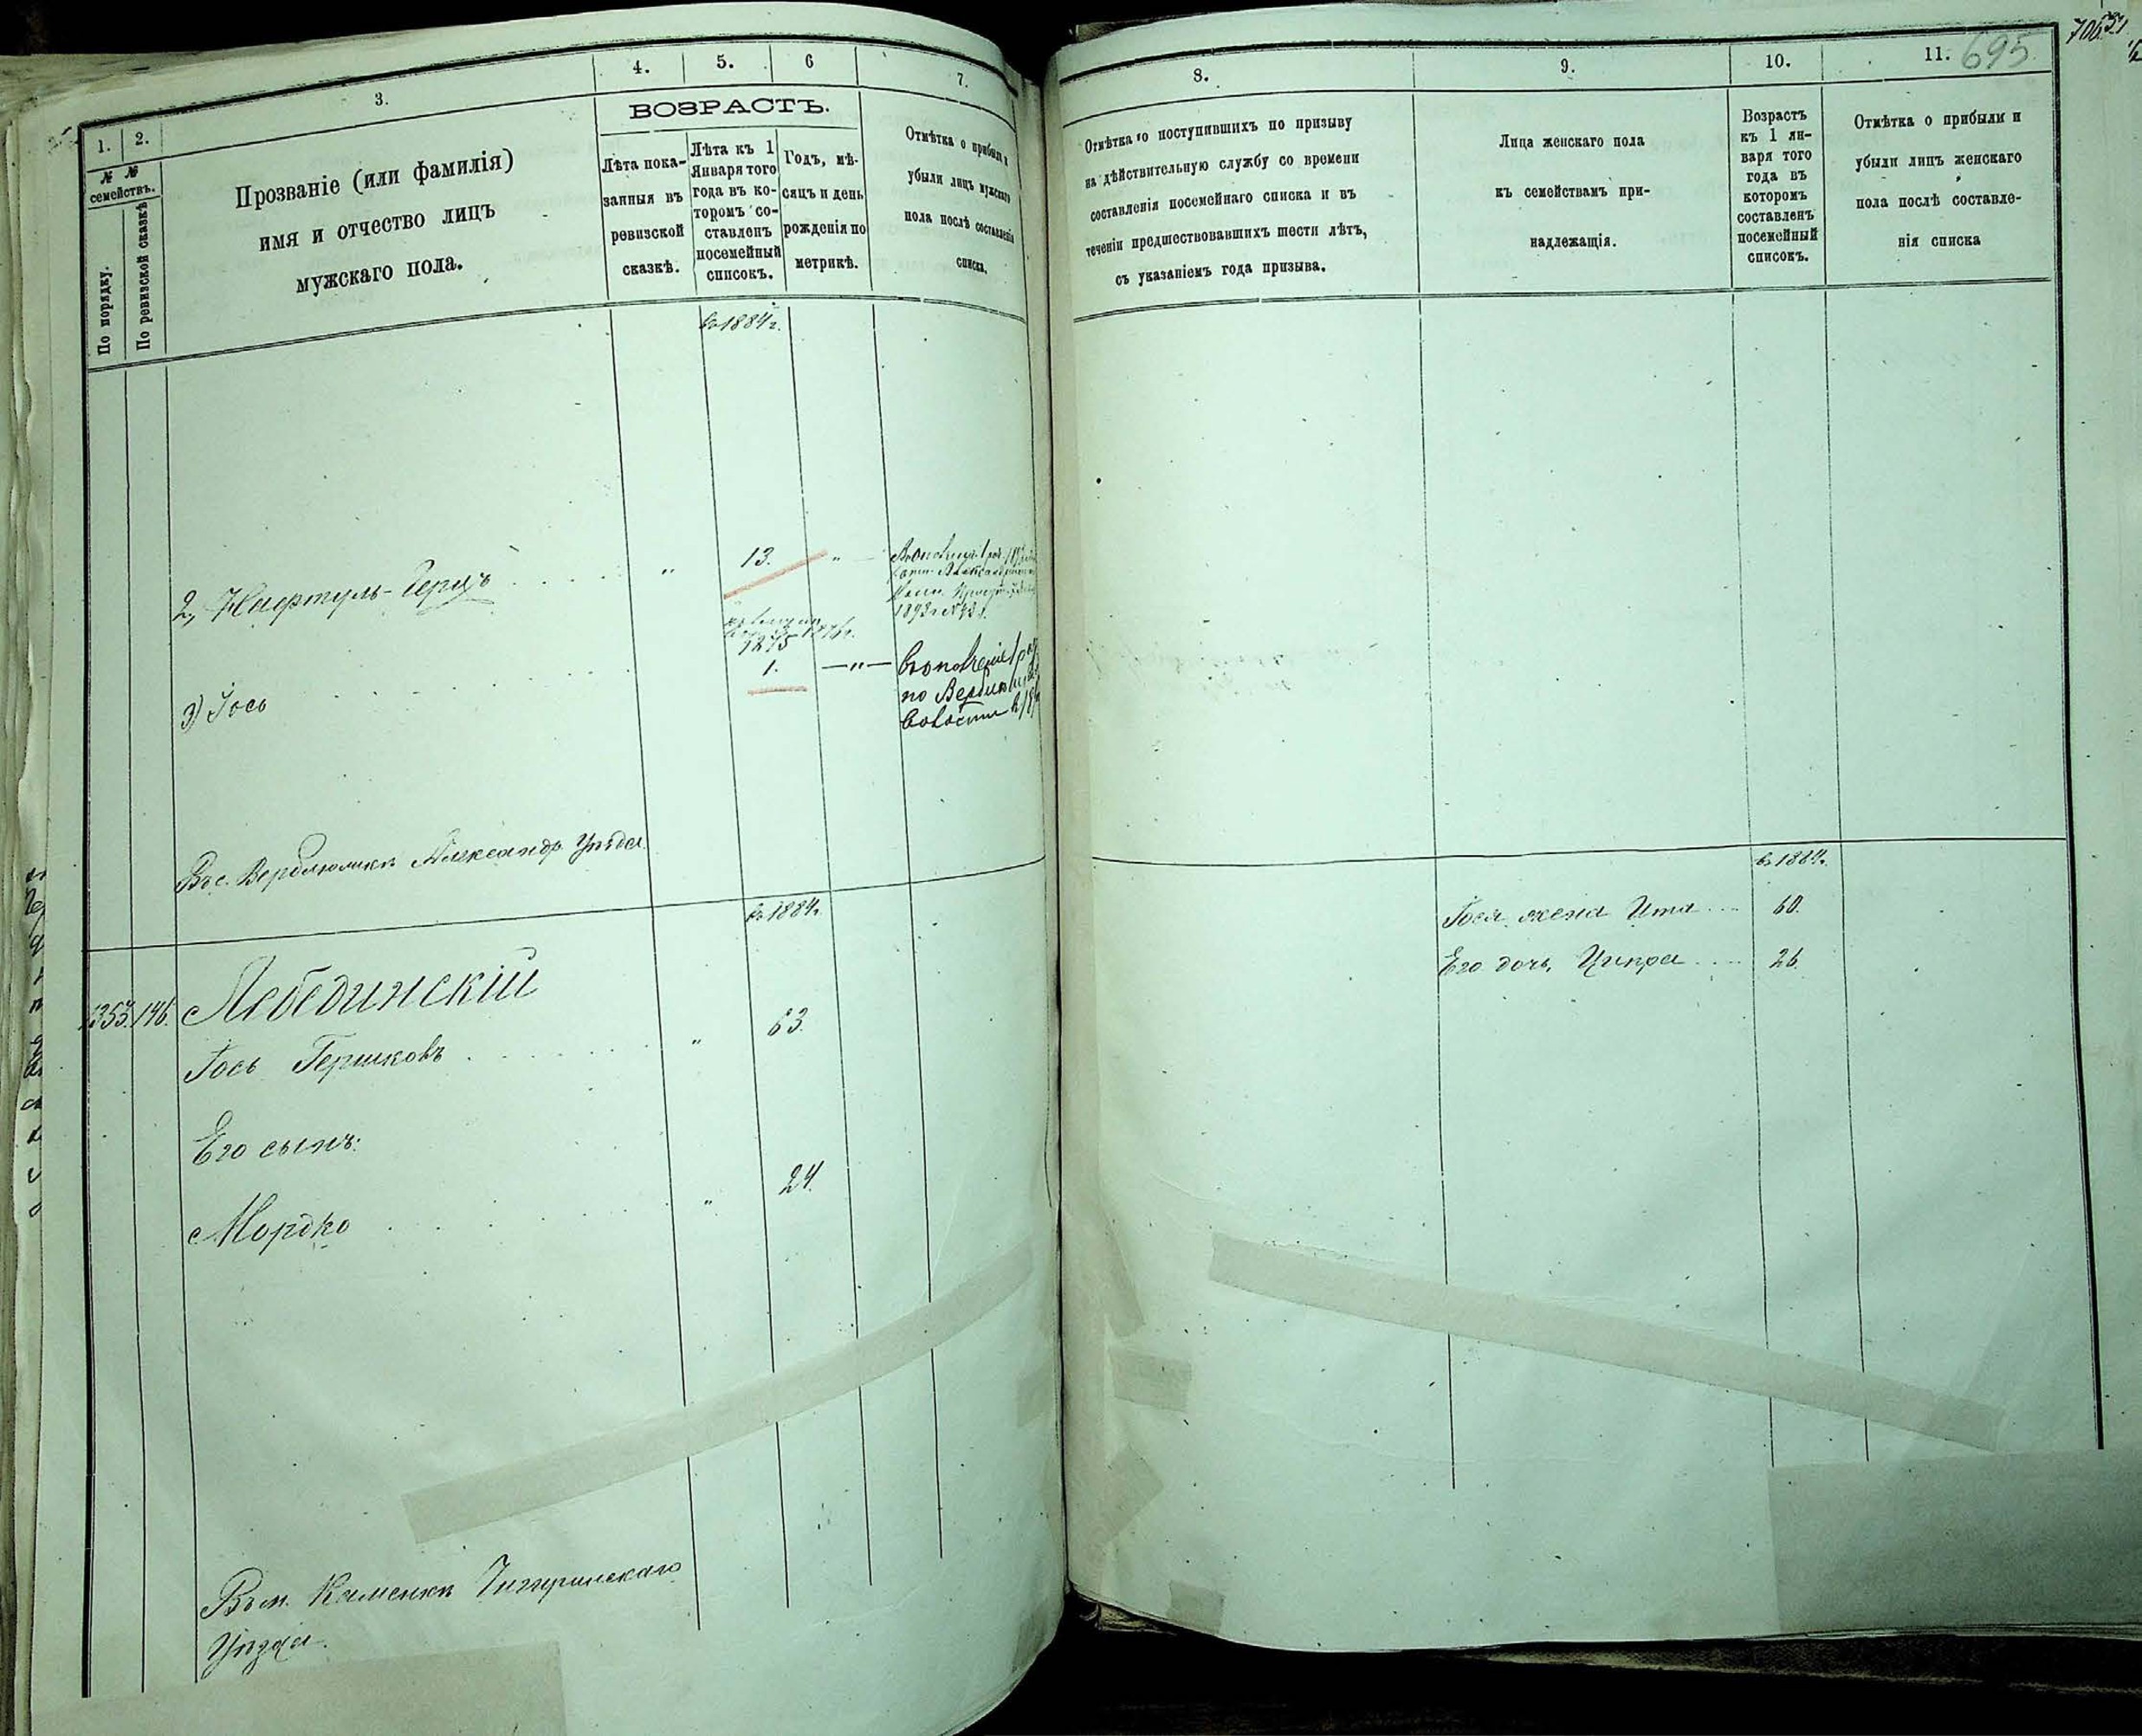 1.
2.
3.
4.
5.
6
7.
№ №
семействъ.
По порядку.
По ревизской сказкѣ
Прозваніе (или фамилія)
имя и отчество лицъ
мужскаго пола.
ВОЗРАСТЪ.
Лѣта пока-
занныя въ
ревизской
сказкѣ.
Лѣта къ 1
Января того
года въ ко-
торомъ со-
ставленъ
посемейный
списокъ.
Годъ, мѣ-
сяцъ и день
рожденія по
метрикѣ.
Отмѣтка о прибыли и
убыли лицъ мужскаго
пола послѣ составленія
списка.
въ 1884 г.
2, Нафтуль-Герцъ " 13. "
1892 г №
1875
3) Іось 1. — " — въ ополченіе 1 раз
по
волости
Въ с. Верблюжкѣ Александр. Уѣзда
въ 1884 г.
1353. 146. Лебединскій
Іось Гершковъ " 63.
Его сынъ:
Мордко " 24.
Въ м. Каменкѣ Чигиринскаго
Уѣзда.
8.
9.
10.
11.
695
706
Отмѣтка о поступившихъ по призыву
на дѣйствительную службу со времени
составленія посемейнаго списка и въ
теченіи предшествовавшихъ шести лѣтъ,
съ указаніемъ года призыва.
Лица женскаго пола
къ семействамъ при-
надлежащія.
Возрастъ
къ 1 ян-
варя того
года въ
которомъ
составленъ
посемейный
списокъ.
Отмѣтка о прибыли и
убыли лицъ женскаго
пола послѣ составле-
нія списка
въ 1884 г.
Іося жена Ита 60.
Его дочь, Ципра 26.